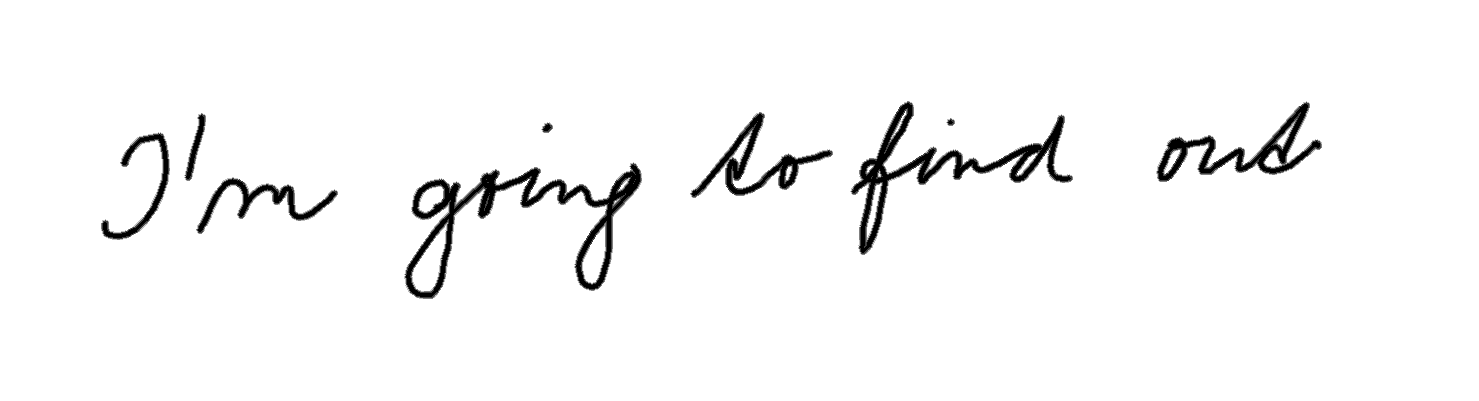 I'm going to find out